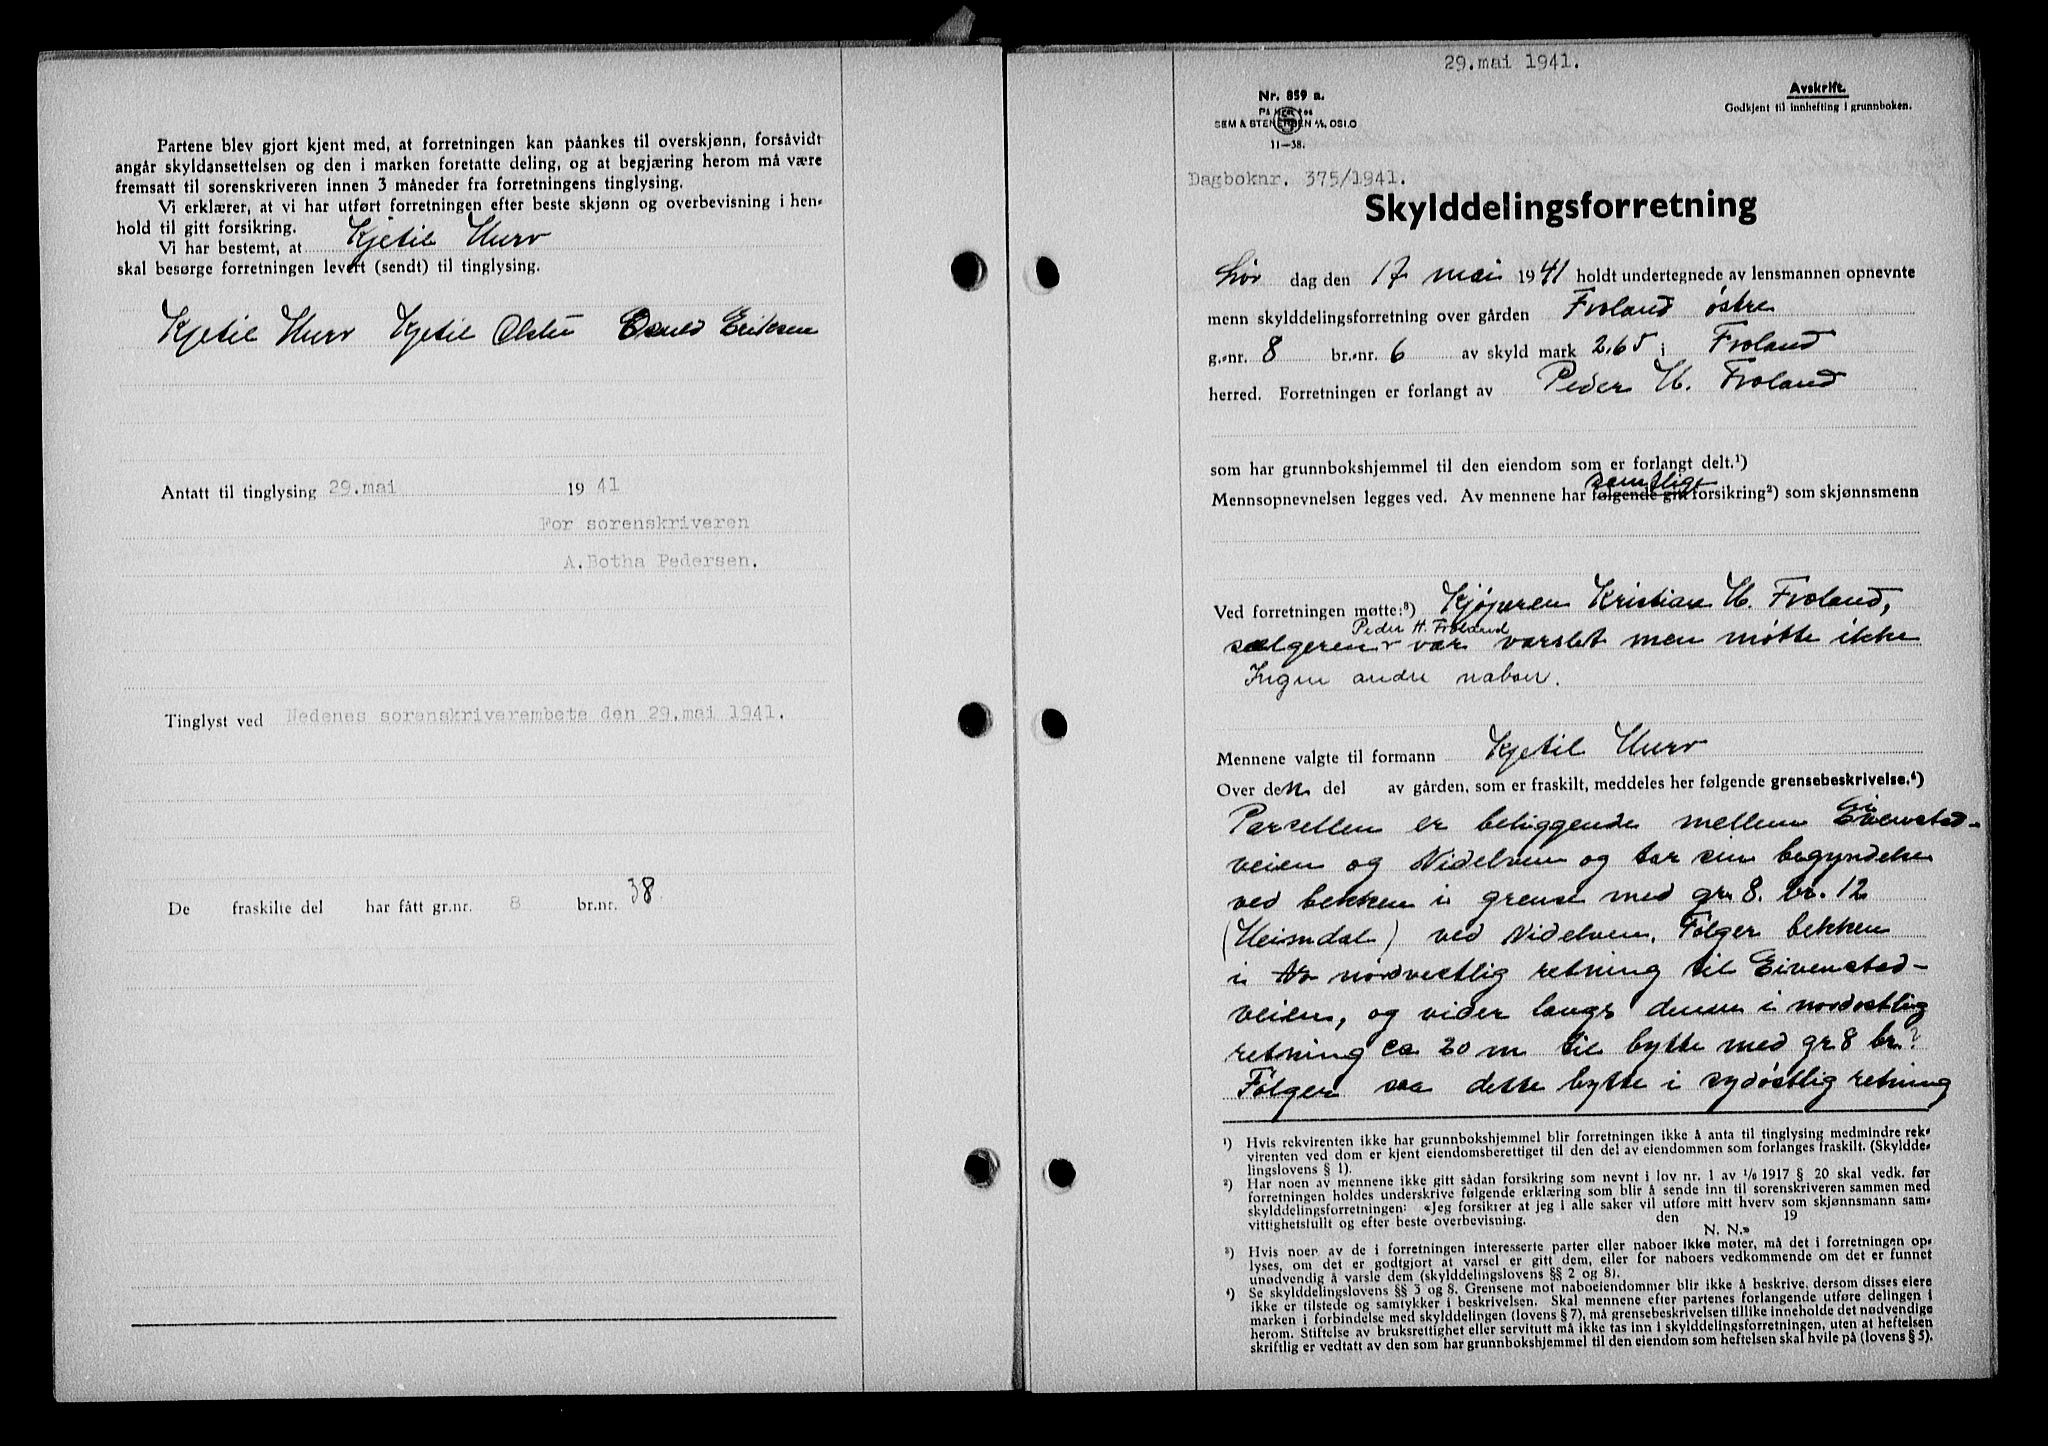 Partene blev gjort kjent med, at forretningen kan påankes til overskjønn, forsåvidt
angår skyldansettelsen og den i marken foretatte deling, og at begjæring herom må være
fremsatt til sorenskriveren innen 3 måneder fra forretningens tinglysing.
Vi erklærer, at vi har utført forretningen efter beste skjønn og overbevisning i hen-
hold til gitt forsikring.
Vi har bestemt, at Kjetil Hurv
skal besørge forretningen levert (sendt) til tinglysing.
Kjetil Hurv Kjetil Eriksen
Antatt til tinglysing 29.mai 1941
For sorenskriveren
A.Botha Pedersen.
Tinglyst ved Nedenes sorenskriverembete den 29.mai 1941.
De fraskilte del har fått gr.nr. 8 br.nr. 38.
29.mai 1941.
Avskrift.
Godkjent til innhefting i grunnboken.
Nr. 859 a.
SEM & STENERSEN A/S, OSLO
11—38.
Dagboknr. 375/1941.
Skylddelingsforretning
Lør dag den 17 mai 1941 holdt undertegnede av lensmannen opnevnte
menn skylddelingsforretning over gården Froland østre
g.-nr. 8 br.-nr. 6 av skyld mark 2.65 i Froland
herred. Forretningen er forlangt av Peder H. Froland
som har grunnbokshjemmel til den eiendom som er forlangt delt.¹)
samtlige
Mennsopnevnelsen legges ved. Av mennene har følgende gitt forsikring²) som skjønnsmenn
Ved forretningen møtte:³) Kjøperen Kristian H. Froland,
Peder H. Froland
sælgeren var varslet men møtte ikke
Ingen andre naboer.
Mennene valgte til formann Kjetil Hurv
Over den del av gården, som er fraskilt, meddeles her følgende grensebeskrivelse.⁴)
Parsellen er beliggende mellem Eivenstad-
veien og Nidelven og tar sin begyndelse
ved bekken i grense med gr. 8. br. 12
(Heimdal) ved Nidelven. Følger bekken
i nordvestlig retning til Eivenstad-
veien, og vider langs denne i nordostlig
retning ca 20 m til bytte med gr 8 br. ?
Følger saa dette bytte i sydøstlig retning
¹) Hvis rekvirenten ikke har grunnbokshjemmel blir forretningen ikke å anta til tinglysing medmindre rek-
virenten ved dom er kjent eiendomsberettiget til den del av eiendommen som forlanges fraskilt. (Skyldde-
lingslovens § 1).
²) Har noen av mennene ikke gitt sådan forsikring som nevnt i lov nr. 1 av 1/6 1917 § 20 skal vedk. før
forretningen holdes underskrive følgende erklæring som blir å sende inn til sorenskriveren sammen med
skylddelingsforretningen: «Jeg forsikrer at jeg i alle saker vil utføre mitt hverv som skjønnsmann sam-
vittighetsfullt og efter beste overbevisning. den 19
N. N.»
³) Hvis noen av de i forretningen interesserte parter eller naboer ikke møter, må det i forretningen op-
lyses, om det er godtgjort at varsel er gitt dem, eller for naboers vedkommende om det er funnet
unødvendig å varsle dem (skylddelingslovens §§ 2 og 8).
⁴) Se skylddelingslovens §§ 3 og 8. Grensene mot naboeiendommer blir ikke å beskrive, dersom disses eiere
ikke er tilstede og samtykker i beskrivelsen. Skal mennene efter partenes forlangende utføre delingen i
marken i forbindelse med skylddelingen (lovens § 7), må grensebeskrivelsen tillike inneholde det nødvendige
herom. Stiftelse av bruksrettighet eller servitutt må ikke tas inn i skylddelingsforretningen, uten at heftelsen
skriftlig er vedtatt av den som har grunnbokshjemmel til den eiendom som heftelsen skal hvile på (lovens § 5).